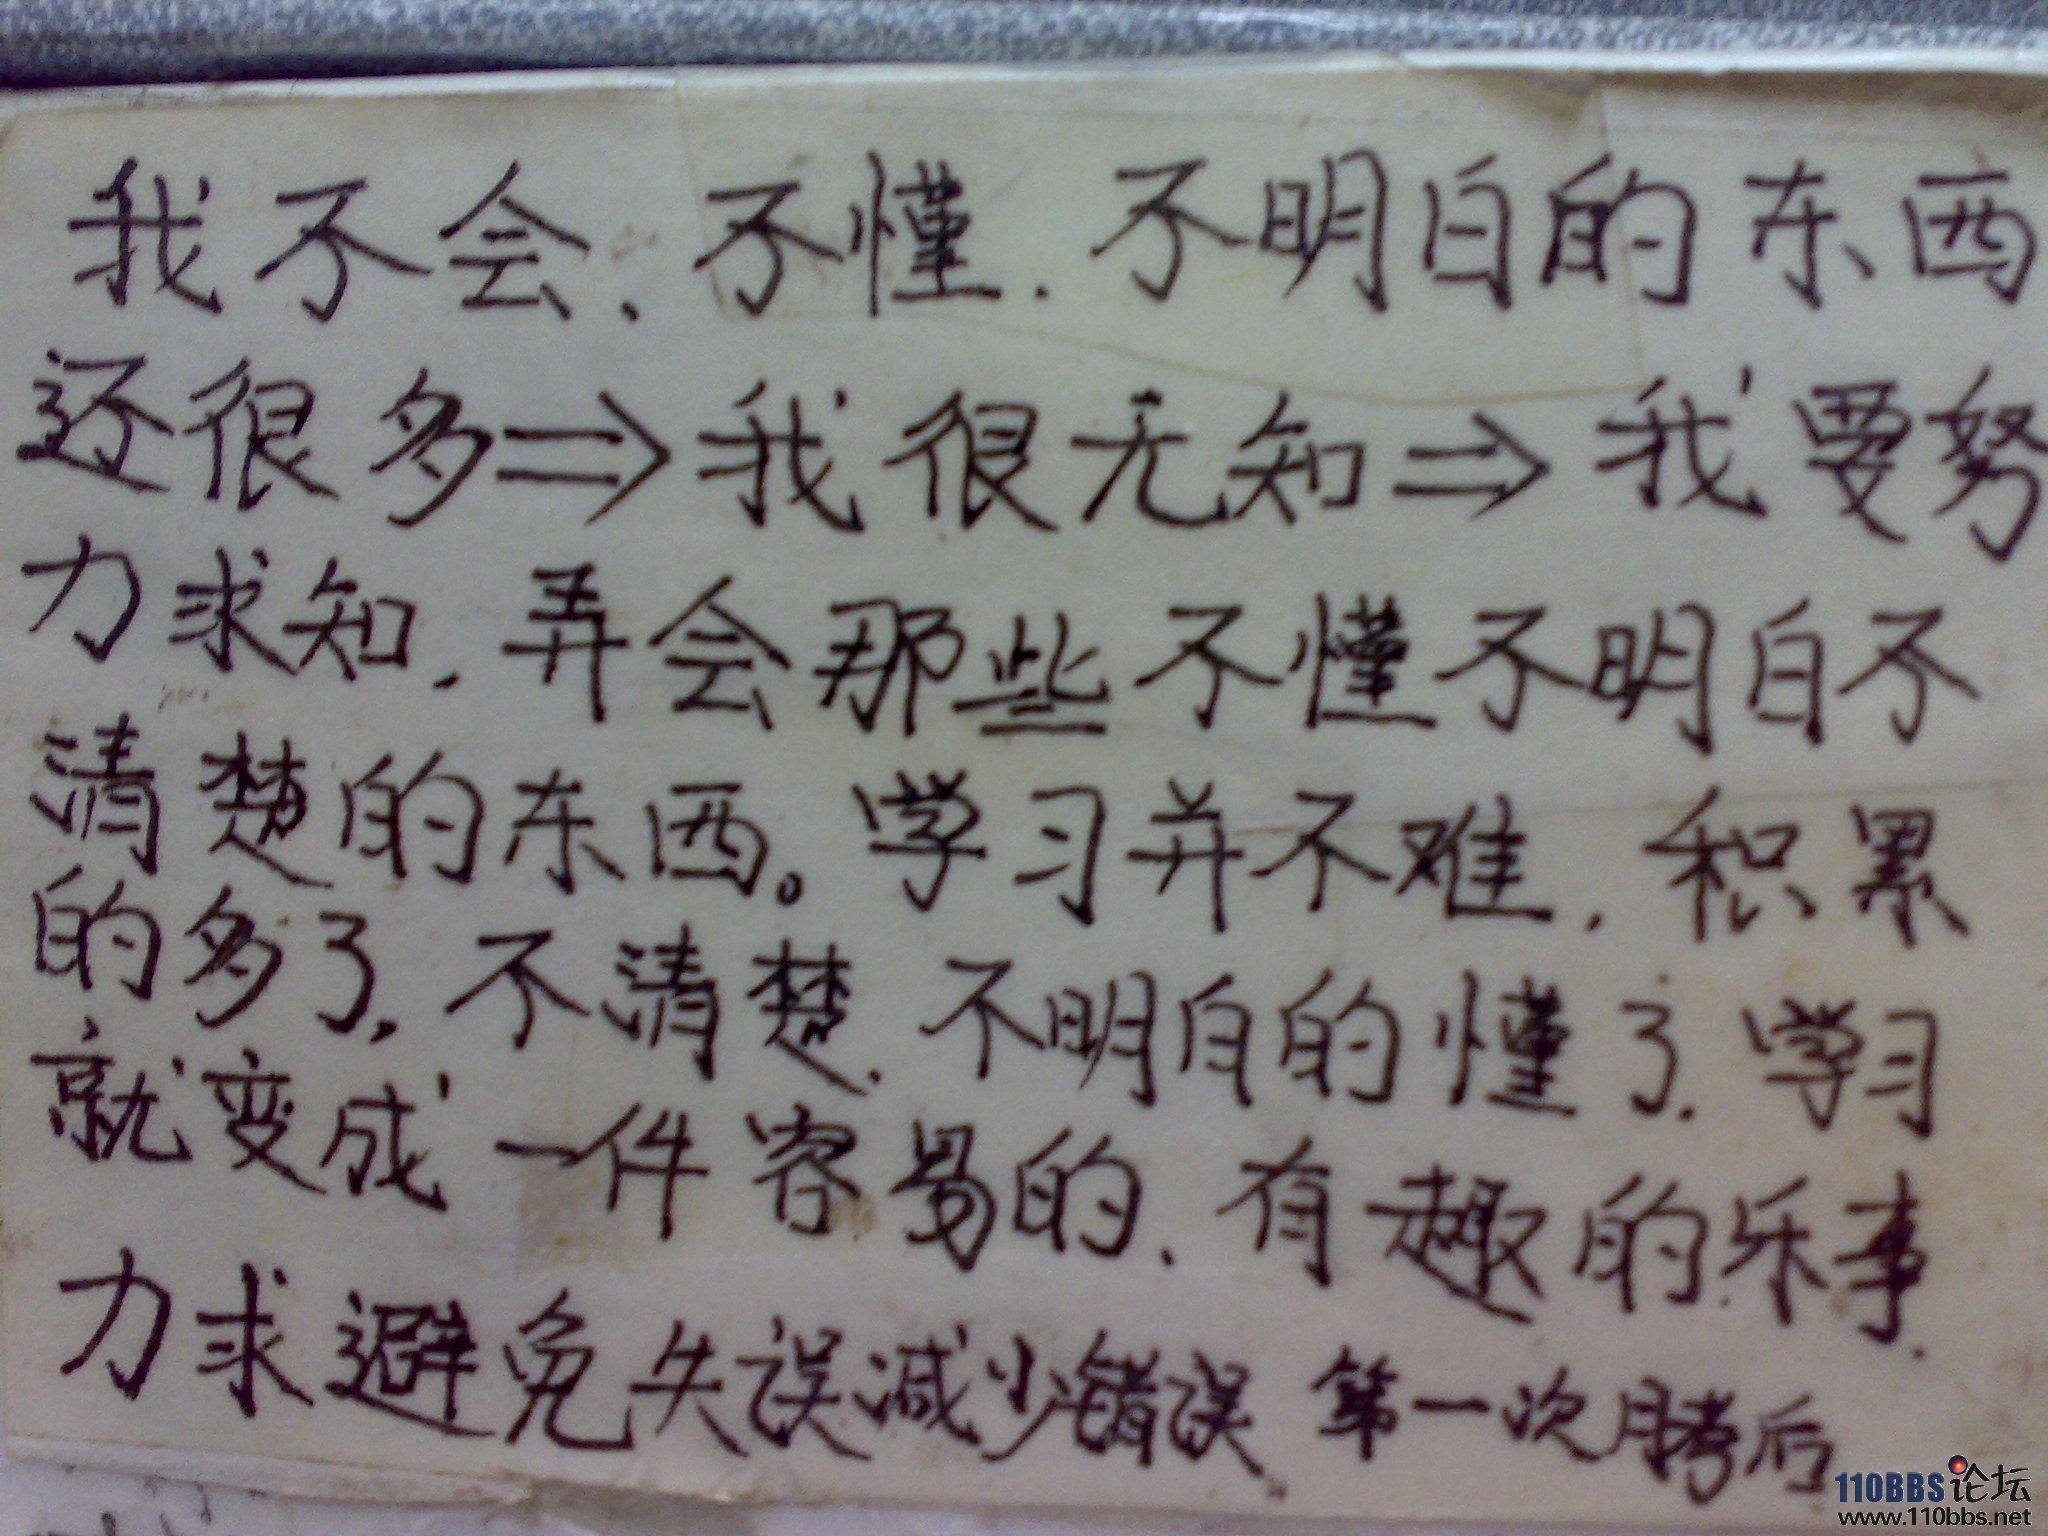 我不会、不懂、不明白的东西
还很多⇒我很无知⇒我要努
力求知、弄会那些不懂不明白不
清楚的东西。学习并不难、积累
的多了,不清楚、不明白的懂了、学习
就变成一件容易的、有趣的乐事、
力求避免失误减少错误 第一次月考后
110BBS论坛
www.110bbs.net